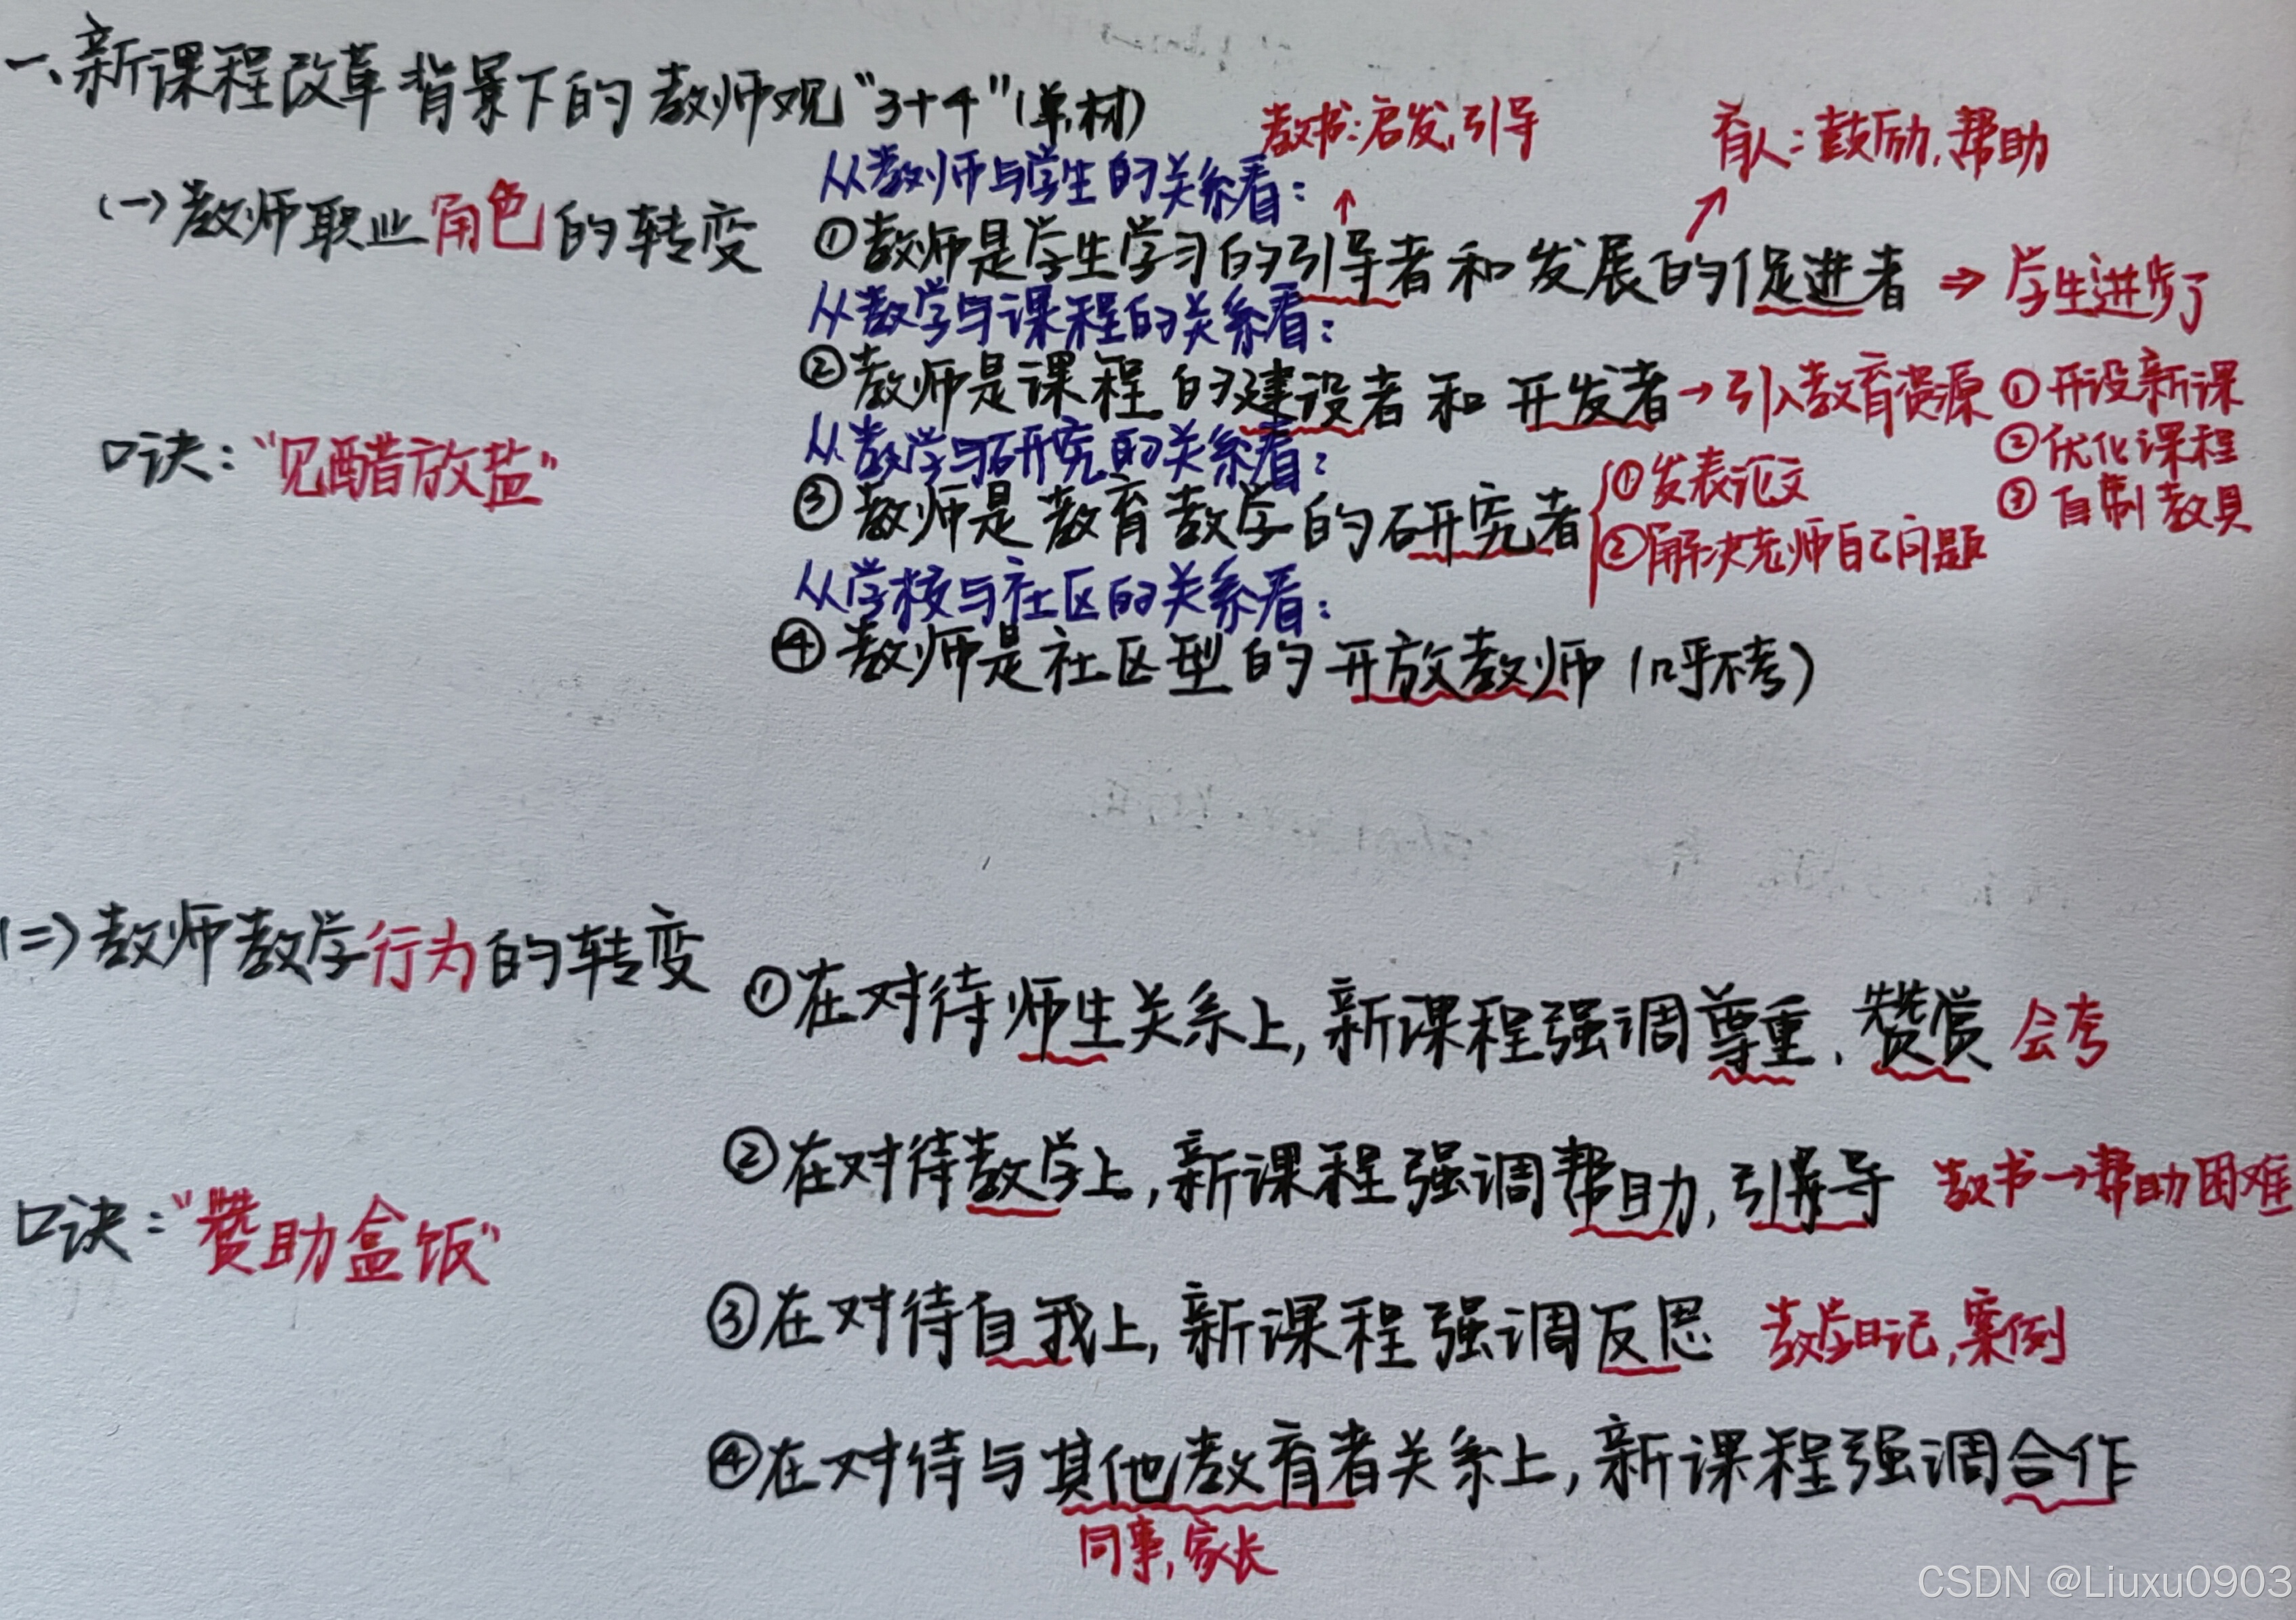 一、新课程改革背景下的教师观“3+4”(单材)
教书:启发,引导
育人:鼓励,帮助
(一)教师职业角色的转变
从教师与学生的关系看:
①教师是学生学习的引导者和发展的促进者⇒学生进步了
从教学与课程的关系看:
②教师是课程的建设者和开发者→引入教育资源
①开设新课
②优化课程
③自制教具
口诀:“见醋放盐”
从教学与研究的关系看:
③教师是教育教学的研究者
①发表论文
②解决老师自己问题
从学校与社区的关系看:
④教师是社区型的开放教师(几乎不考)
(二)教师教学行为的转变
①在对待师生关系上,新课程强调尊重、赞赏 会考
②在对待教学上,新课程强调帮助,引导 教书→帮助困难
口诀:“赞助盒饭”
③在对待自我上,新课程强调反思 教学日记,案例
④在对待与其他教育者关系上,新课程强调合作
同事,家长
CSDN @Liuxu0903